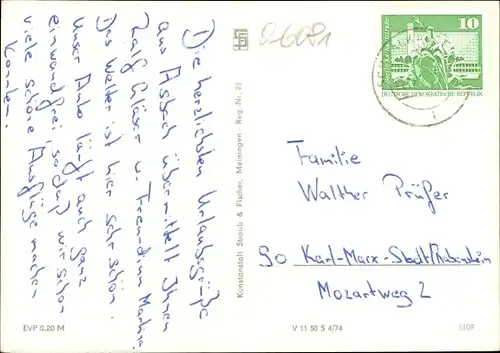 Die herzlichsten Urlaubsgrüße
aus Asbach übermittelt Ihnen
Ralf Gläser u. Freundin Martina
Das Wetter ist hier sehr schön.
Unser Auto läuft auch ganz
einwandfrei, so daß wir schon
viele schöne Ausflüge machen
konnten.
Kunstanstalt Straub & Fischer, Meiningen Reg.-Nr. 22
10
DEUTSCHE DEMOKRATISCHE REPUBLIK
Familie
Walther Prüfer
90 Karl-Marx-Stadt/Rabenstein
Mozartweg 2
EVP 0,20 M
V 11 50 S 4/74
5109